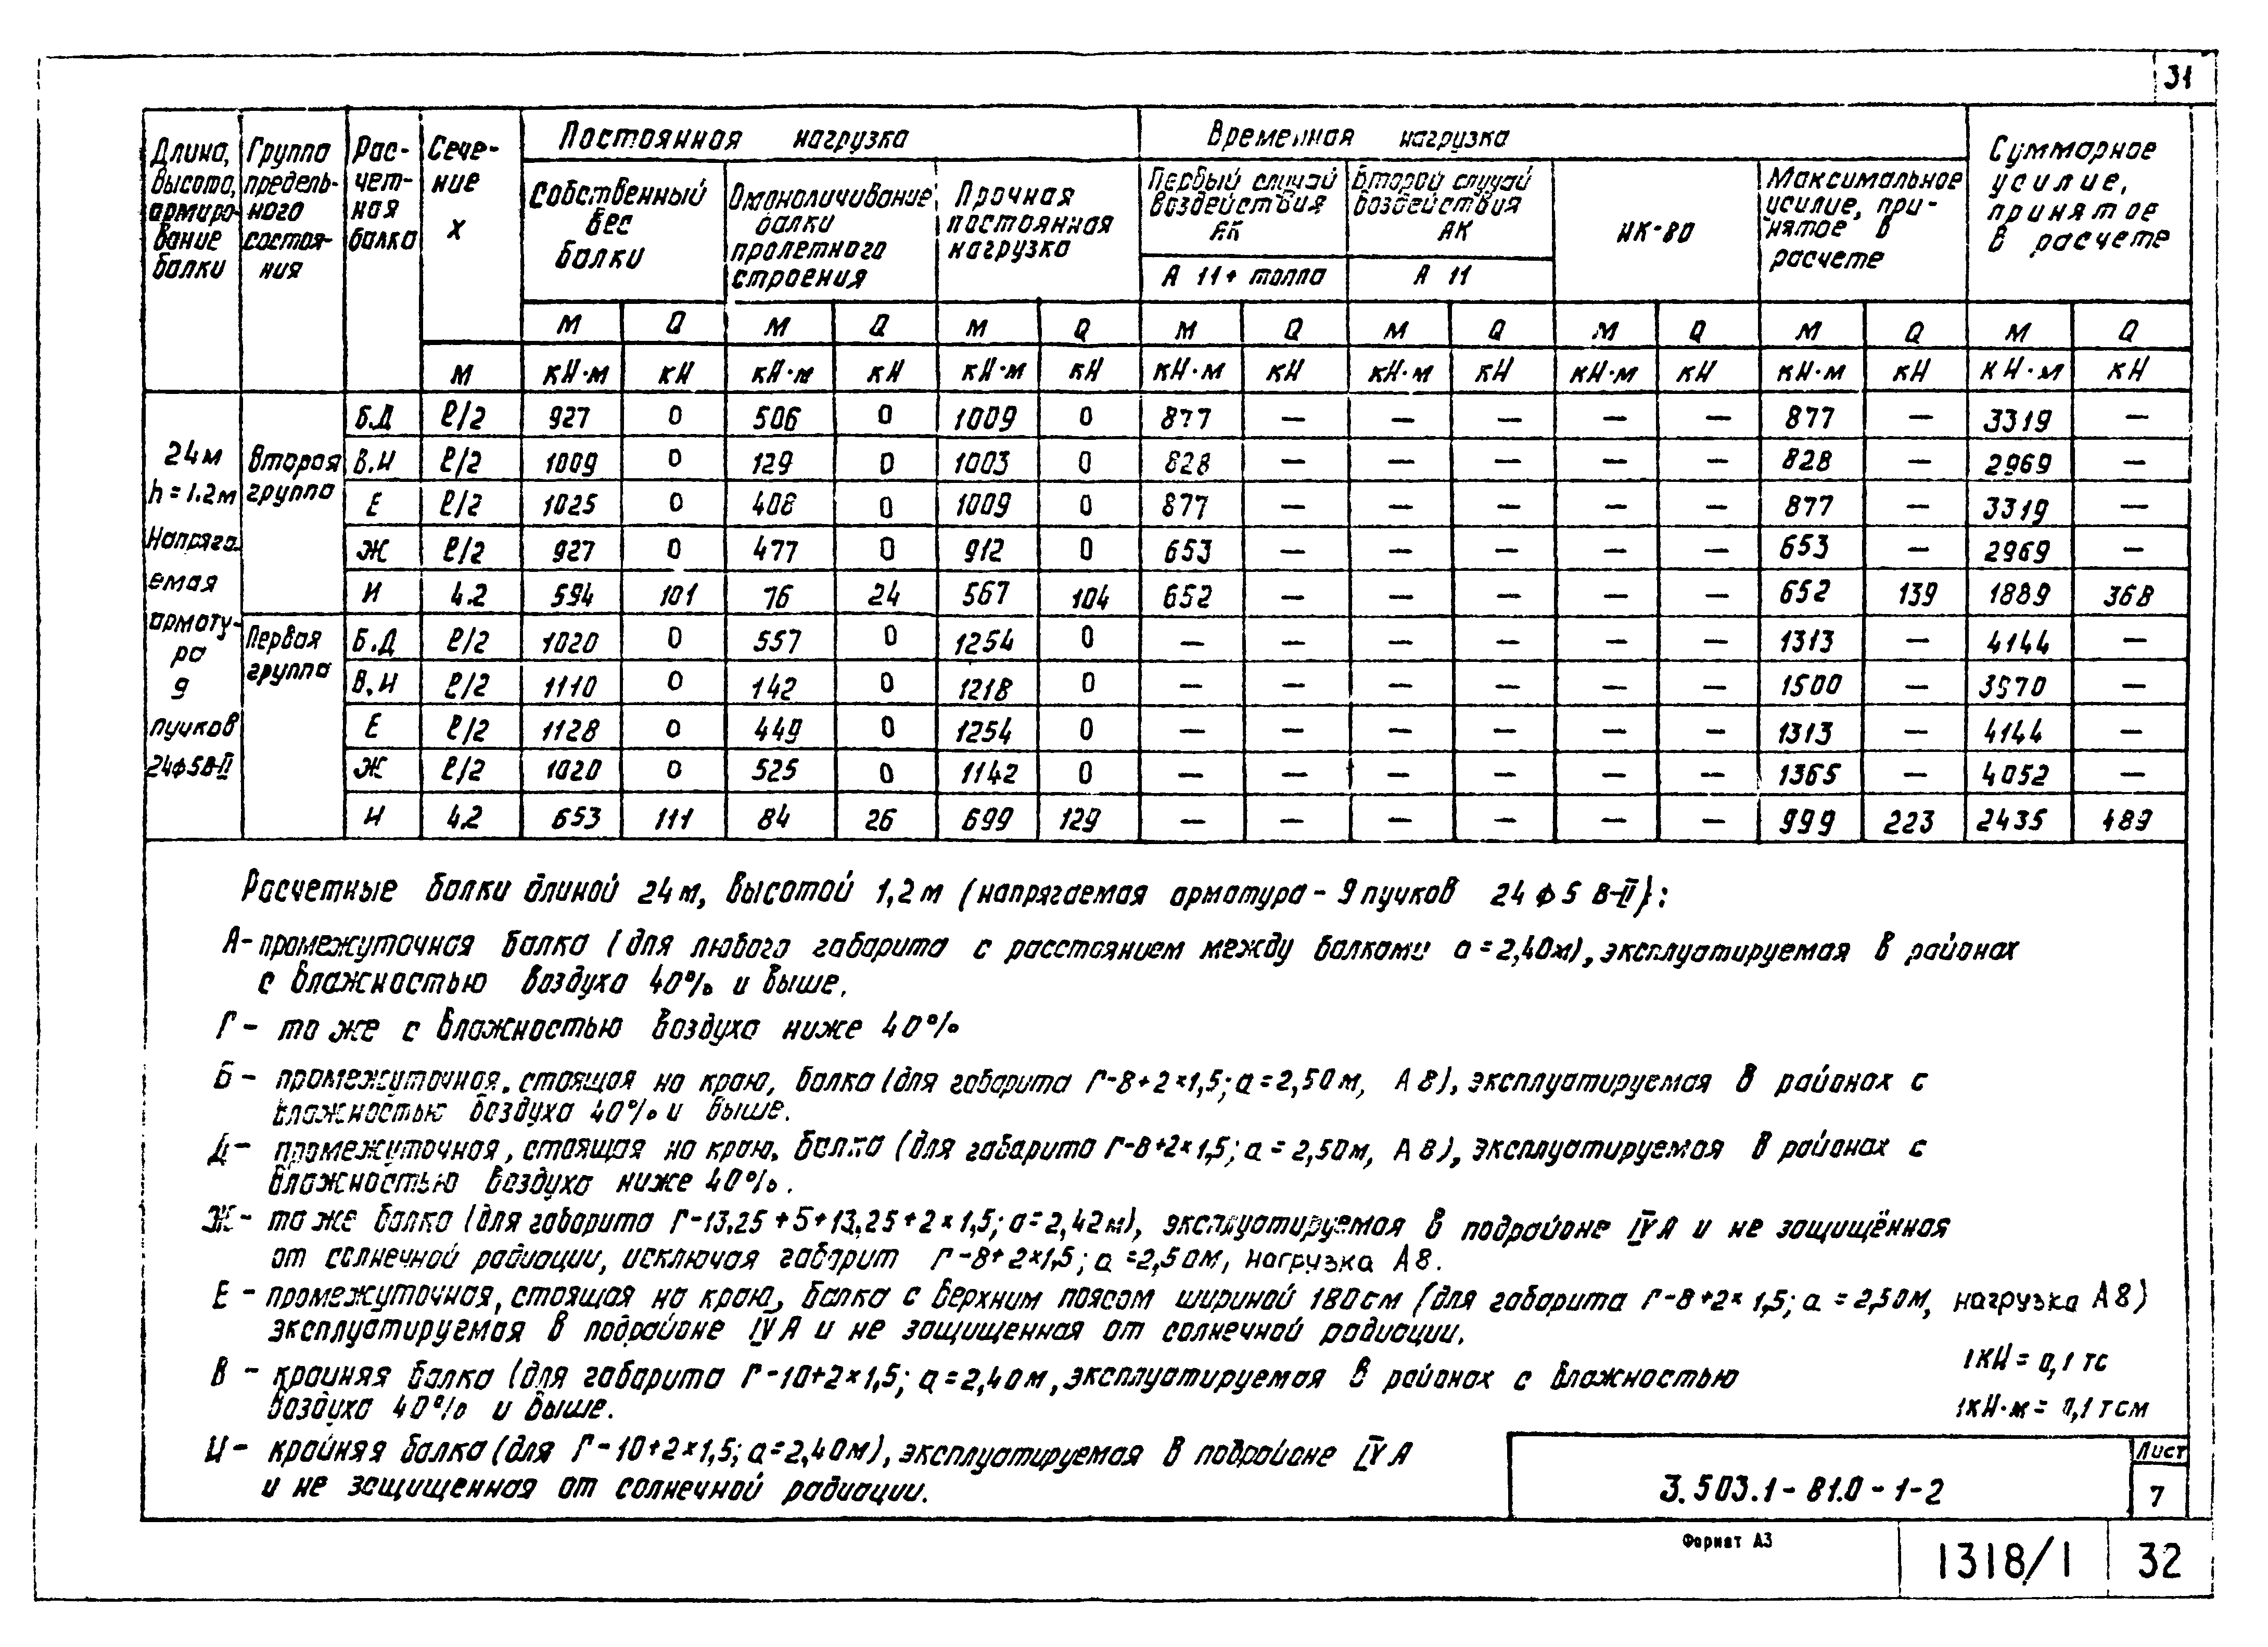 31
Длина, высота, армирование балки | Группа предельного состояния | Расчетная балка | Сечение X | Постоянная нагрузка | Временная нагрузка | Суммарное усилие, принятое в расчете
Собственный вес балки | Омоноличивание балки пролетного строения | Прочная постоянная нагрузка | Первый случай воздействия АК | Второй случай воздействия АК | НК-80 | Максимальное усилие, принятое в расчете
А 11 + толпа | А 11
М | Q | М | Q | М | Q | М | Q | М | Q | М | Q | М | Q | М | Q
м | кН·м | кН | кН·м | кН | кН·м | кН | кН·м | кН | кН·м | кН | кН·м | кН | кН·м | кН | кН·м | кН
24м h=1.2м Напрягаемая арматура 9 пучков 24ф5В-II
Вторая группа
Б.Д | ℓ/2 | 927 | 0 | 506 | 0 | 1009 | 0 | 877 | — | — | — | — | — | 877 | — | 3319 | —
В.И | ℓ/2 | 1009 | 0 | 129 | 0 | 1003 | 0 | 828 | — | — | — | — | — | 828 | — | 2969 | —
Е | ℓ/2 | 1025 | 0 | 408 | 0 | 1009 | 0 | 877 | — | — | — | — | — | 877 | — | 3319 | —
Ж | ℓ/2 | 927 | 0 | 477 | 0 | 912 | 0 | 653 | — | — | — | — | — | 653 | — | 2969 | —
И | 4.2 | 594 | 101 | 76 | 24 | 567 | 104 | 652 | — | — | — | — | — | 652 | 139 | 1889 | 368
Первая группа
Б.Д | ℓ/2 | 1020 | 0 | 557 | 0 | 1254 | 0 | — | — | — | — | — | — | 1313 | — | 4144 | —
В.И | ℓ/2 | 1110 | 0 | 142 | 0 | 1218 | 0 | — | — | — | — | — | — | 1500 | — | 3970 | —
Е | ℓ/2 | 1128 | 0 | 449 | 0 | 1254 | 0 | — | — | — | — | — | — | 1313 | — | 4144 | —
Ж | ℓ/2 | 1020 | 0 | 525 | 0 | 1142 | 0 | — | — | — | — | — | — | 1365 | — | 4052 | —
И | 4.2 | 653 | 111 | 84 | 26 | 699 | 129 | — | — | — | — | — | — | 999 | 223 | 2435 | 489
Расчетные балки длиной 24м, высотой 1,2м (напрягаемая арматура - 9 пучков 24 ф 5 В-II):
А- промежуточная балка (для любого габарита с расстоянием между балками а = 2,40м), эксплуатируемая в районах
с влажностью воздуха 40% и выше.
Г - то же с влажностью воздуха ниже 40%
Б - промежуточная, стоящая на краю, балка (для габарита Г-8+2×1,5; а=2,50м, А8), эксплуатируемая в районах с
влажностью воздуха 40% и выше.
Д - промежуточная, стоящая на краю, балка (для габарита Г-8+2×1,5; а = 2,50м, А8), эксплуатируемая в районах с
влажностью воздуха ниже 40%.
Ж - то же балка (для габарита Г-13,25+5+13,25+2×1,5; а=2,42м), эксплуатируемая в подрайоне IVА и не защищённая
от солнечной радиации, исключая габарит Г-8+2×1,5; а =2,50м, нагрузка А8.
Е - промежуточная, стоящая на краю, балка с верхним поясом шириной 180см (для габарита Г-8+2×1,5; а = 2,50м, нагрузка А8)
эксплуатируемая в подрайоне IVА и не защищенная от солнечной радиации.
В - крайняя балка (для габарита Г-10+2×1,5; а=2,40м, эксплуатируемая в районах с влажностью
воздуха 40% и выше.
1кН = 0,1 тс
1кН·м = 0,1 тсм
И - крайняя балка (для Г-10+2×1,5; а=2,40м), эксплуатируемая в подрайоне IVА
и не защищенная от солнечной радиации.
3.503.1-81.0-1-2
Лист
7
Формат А3
1318/1
32